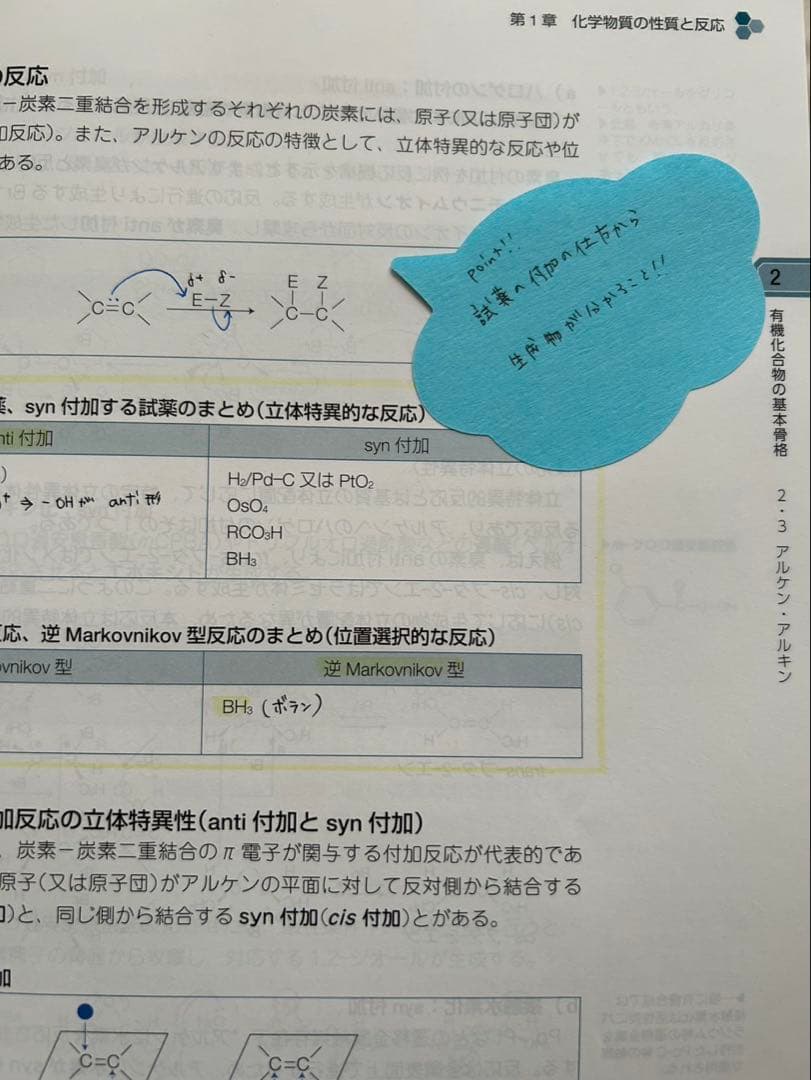 第1章 化学物質の性質と反応
の反応
－炭素二重結合を形成するそれぞれの炭素には、原子(又は原子団)が
加反応)。また、アルケンの反応の特徴として、立体特異的な反応や位
ある。
point!!
試薬の付加の仕方から
生成物が分かること!!
δ+ δ-
E Z
C=C E－Z C－C
2
有機化合物の基本骨格 2・3 アルケン・アルキン
薬、syn 付加する試薬のまとめ(立体特異的な反応)
nti 付加 syn 付加
) H₂/Pd–C 又は PtO₂
+ → -OH が anti 型 OsO₄
RCO₃H
BH₃
応、逆 Markovnikov 型反応のまとめ(位置選択的な反応)
vnikov 型 逆 Markovnikov 型
BH₃ (ボラン)
加反応の立体特異性(anti 付加と syn 付加)
、炭素－炭素二重結合の π 電子が関与する付加反応が代表的であ
原子(又は原子団)がアルケンの平面に対して反対側から結合する
加)と、同じ側から結合する syn 付加(cis 付加)とがある。
加
C=C C=C